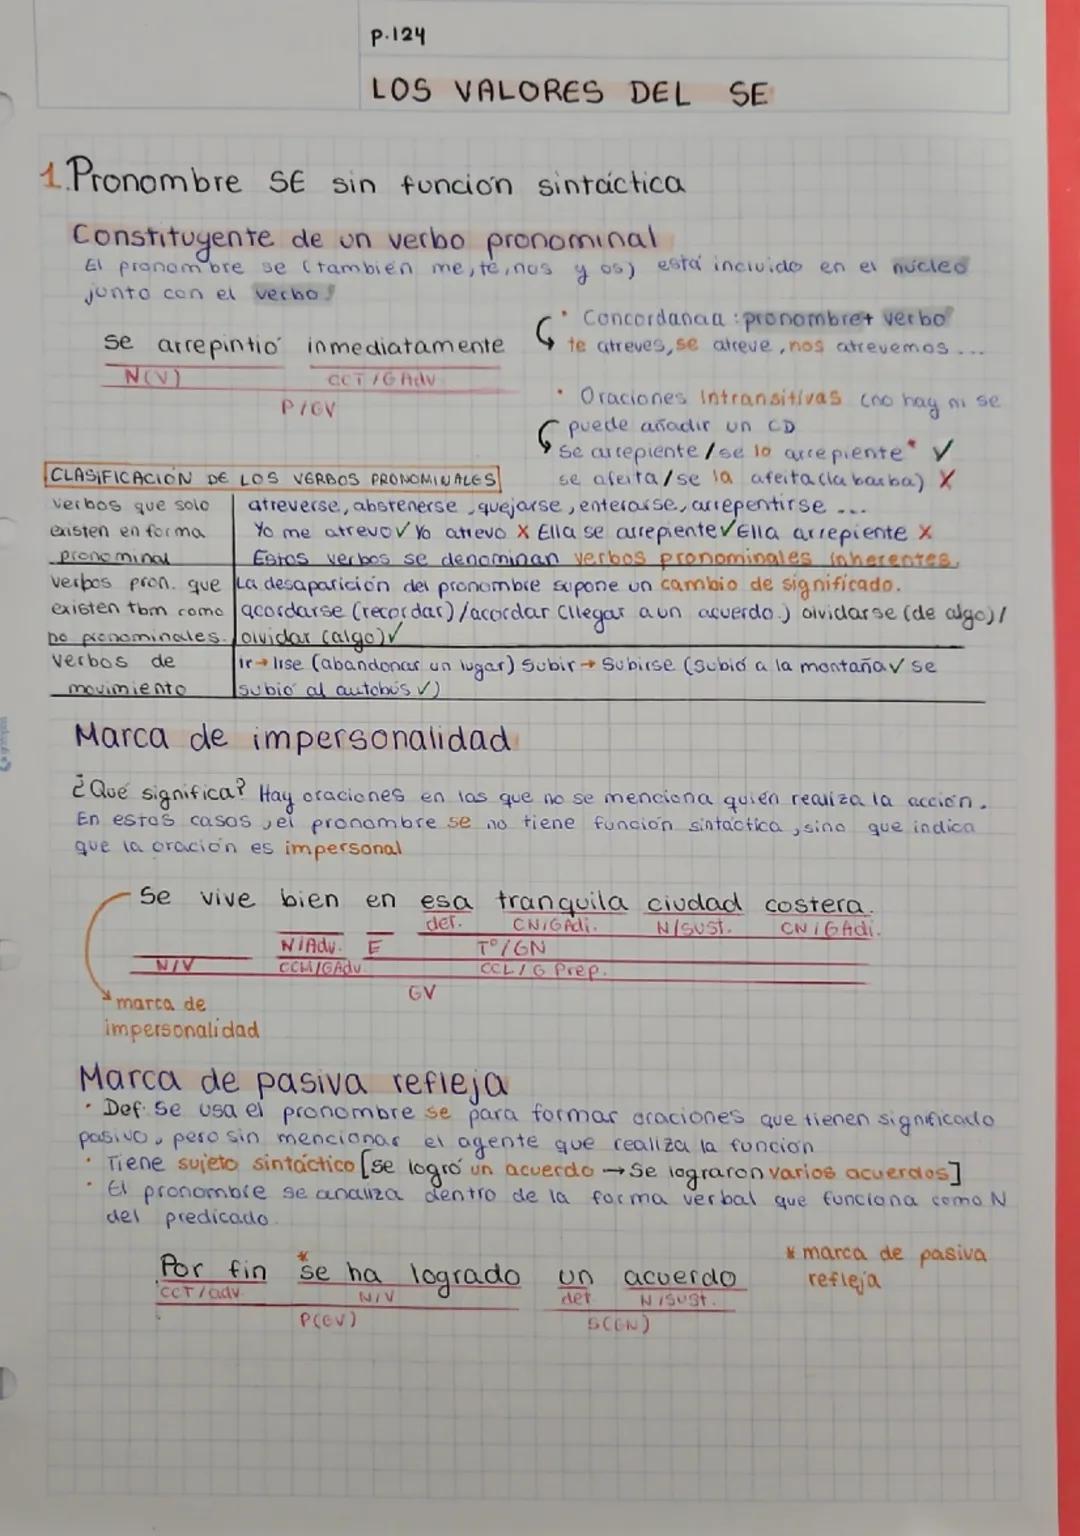 p.124
LOS VALORES DEL SE
1.Pronombre SE sin función sintáctica
Constituyente de un verbo pronominal
El pronombre se (también me, te, nos y os) está incluido en el núcleo
junto con el verbo.
· Concordancia : pronombre + verbo
te atreves, se atreve, nos atrevemos ...
Se arrepintió inmediatamente
N(V) CCT/GAdv
P/GV
· Oraciones intransitivas (no hay ni se
puede añadir un CD
Se arrepiente / se lo arrepiente* ✓
se afeita / se la afeita (la barba) X
CLASIFICACIÓN DE LOS VERBOS PRONOMINALES
verbos que solo existen en forma pronominal
atreverse, abstenerse, quejarse, enterarse, arrepentirse ...
Yo me atrevo ✓ Yo atrevo X Ella se arrepiente ✓ Ella arrepiente X
Estos verbos se denominan verbos pronominales inherentes.
verbos pron. que existen tbm como no pronominales.
La desaparición del pronombre supone un cambio de significado.
acordarse (recordar) / acordar (llegar a un acuerdo.) olvidarse (de algo) /
olvidar (algo) ✓
verbos de movimiento
Ir → Irse (abandonar un lugar) Subir → Subirse (Subió a la montaña ✓ se
subió al autobús ✓)
Marca de impersonalidad
¿Qué significa? Hay oraciones en las que no se menciona quién realiza la acción.
En estos casos, el pronombre se no tiene función sintáctica, sino que indica
que la oración es impersonal
Se vive bien en esa tranquila ciudad costera.
det. CN/GAdj. N/sust. CN/GAdj.
N/Adv. E Tº/GN
N/V CCM/GAdv. CCL/G Prep.
GV
marca de
impersonalidad
Marca de pasiva refleja
· Def: Se usa el pronombre se para formar oraciones que tienen significado
pasivo, pero sin mencionar el agente que realiza la función
· Tiene sujeto sintáctico [se logró un acuerdo → Se lograron varios acuerdos]
· El pronombre se analiza dentro de la forma verbal que funciona como N
del predicado.
* marca de pasiva
refleja
Por fin *se ha logrado un acuerdo
CCT/adv. N/V det N/sust.
P(GV) S(GN)